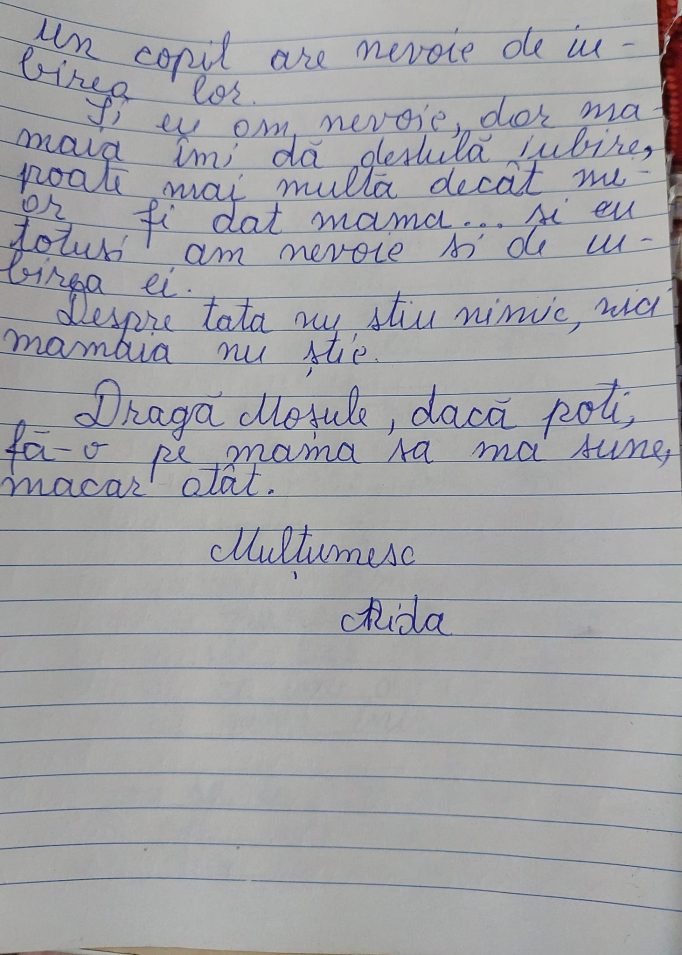 un copil are nevoie de iu-
birea lor.
Și eu am nevoie, dar ma-
maia îmi dă destulă iubire,
poate mai multă decât mi-
ar fi dat mama... si eu
totusi am nevoie si de iu-
birea ei.
Despre tata nu stiu nimic, nici
mamaia nu știe.
Dragă Moșule, dacă poti,
fă-o pe mama sa ma sune,
macar atât.
Mulțumesc
Aida